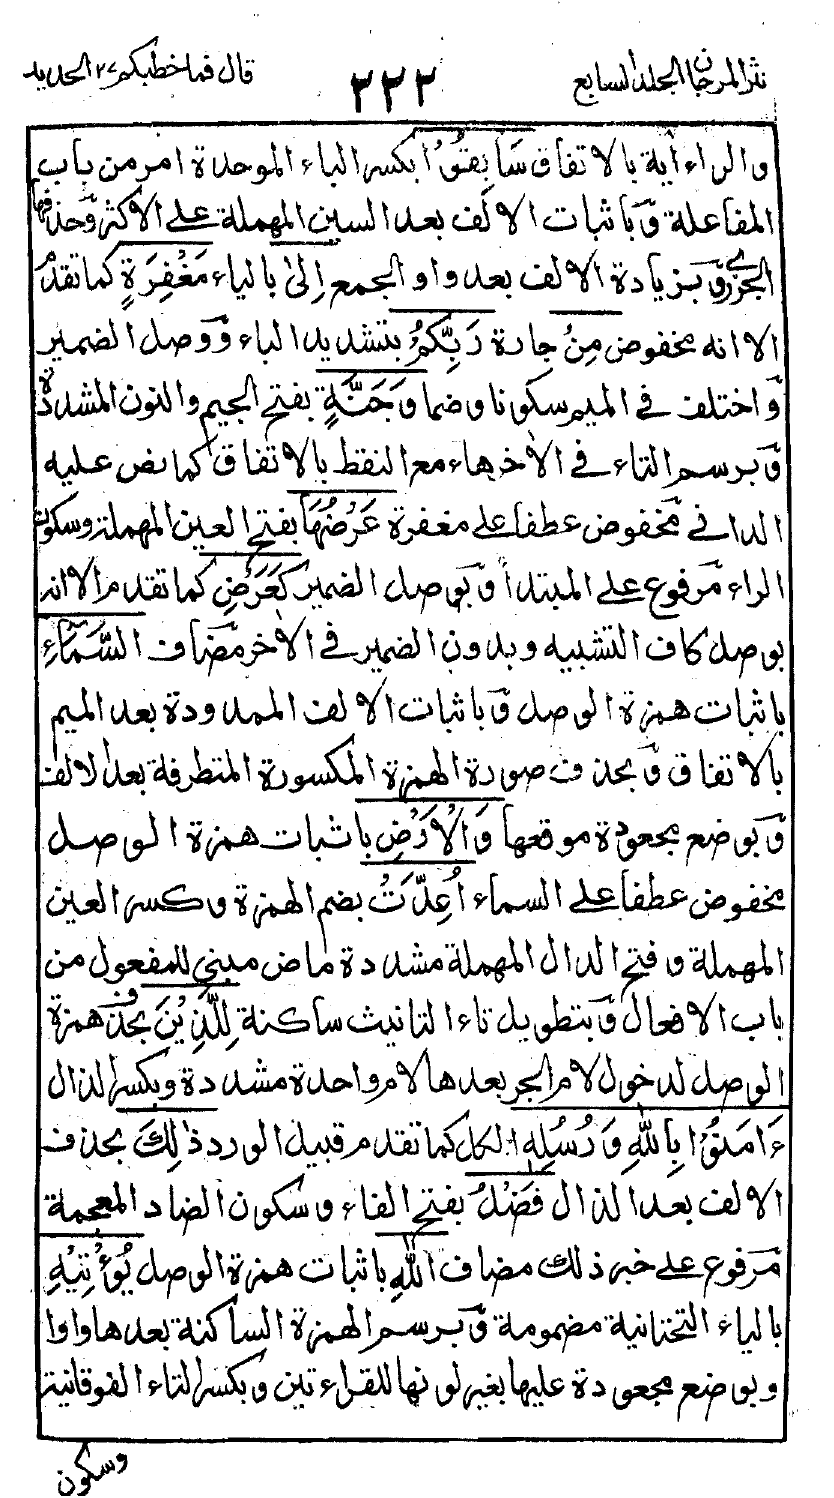 نثر المرجان المجلد السابع
٢٢٢
قال فما خطبكم ٢٧ الحديد
والراء اية بالاتفاق سَابِقُوْا بكسر الباء الموحدة امر من باب
المفاعلة وٓباثبات الالف بعد السين المهملة على الاكثر وٓحذفها
الجزري وٓبزيادة الالف بعد واو الجمع اِلىٰ بالياء مَغْفِرَةٍ كما تقدم
الا انه مخفوض مِنْ جارة رَبِّكُمْ بتشديد الباء وٓوصل الضمير
وٓاختلف في الميم سكونا وضما وَجَنَّةٍ بفتح الجيم والنون المشددة
وٓبرسم التاء في الاخر هاء مع النقط بالاتفاق كما نص عليه
الداني مٓخفوض عطفا على مغفرة عَرْضُهَا بفتح العين المهملة وسكون
الراء مٓرفوع على المبتدأ وٓبوصل الضمير كَعَرْضِ كما تقدم الا انه
بوصل كاف التشبيه وبدون الضمير في الاخر مٓضاف السَّمَآءِ
باثبات همزة الوصل وٓباثبات الالف الممدودة بعد الميم
بالاتفاق وٓبحذف صورة الهمزة المكسورة المتطرفة بعد الالف
وٓبوضع مجعودة موقعها وَالْاَرْضِ باثبات همزة الوصل
مخفوض عطفا على السماء اُعِدَّتْ بضم الهمزة وكسر العين
المهملة وفتح الدال المهملة مشددة ماض مبني للمفعول من
باب الافعال وٓبتطويل تاء التانيث ساكنة لِلَّذِيْنَ بحذف همزة
الوصل لدخول لام الجر بعدها لام واحدة مشددة وبكسر الذال
ءَامَنُوْا بِاللهِ وَرُسُلِهٖ الكل كما تقدم قبيل الورد ذٰلِكَ بحذف
الالف بعد الذال فَضْلُ بفتح الفاء وسكون الضاد المعجمة
مٓرفوع على خبر ذلك مضاف اللهِ باثبات همزة الوصل يُؤْتِيْهِ
بالياء التحتانية مضمومة وٓبرسم الهمزة الساكنة بعدها واوا
وبوضع مجعودة عليها بغير لونها للقراءتين وبكسر التاء الفوقانية
وسكون